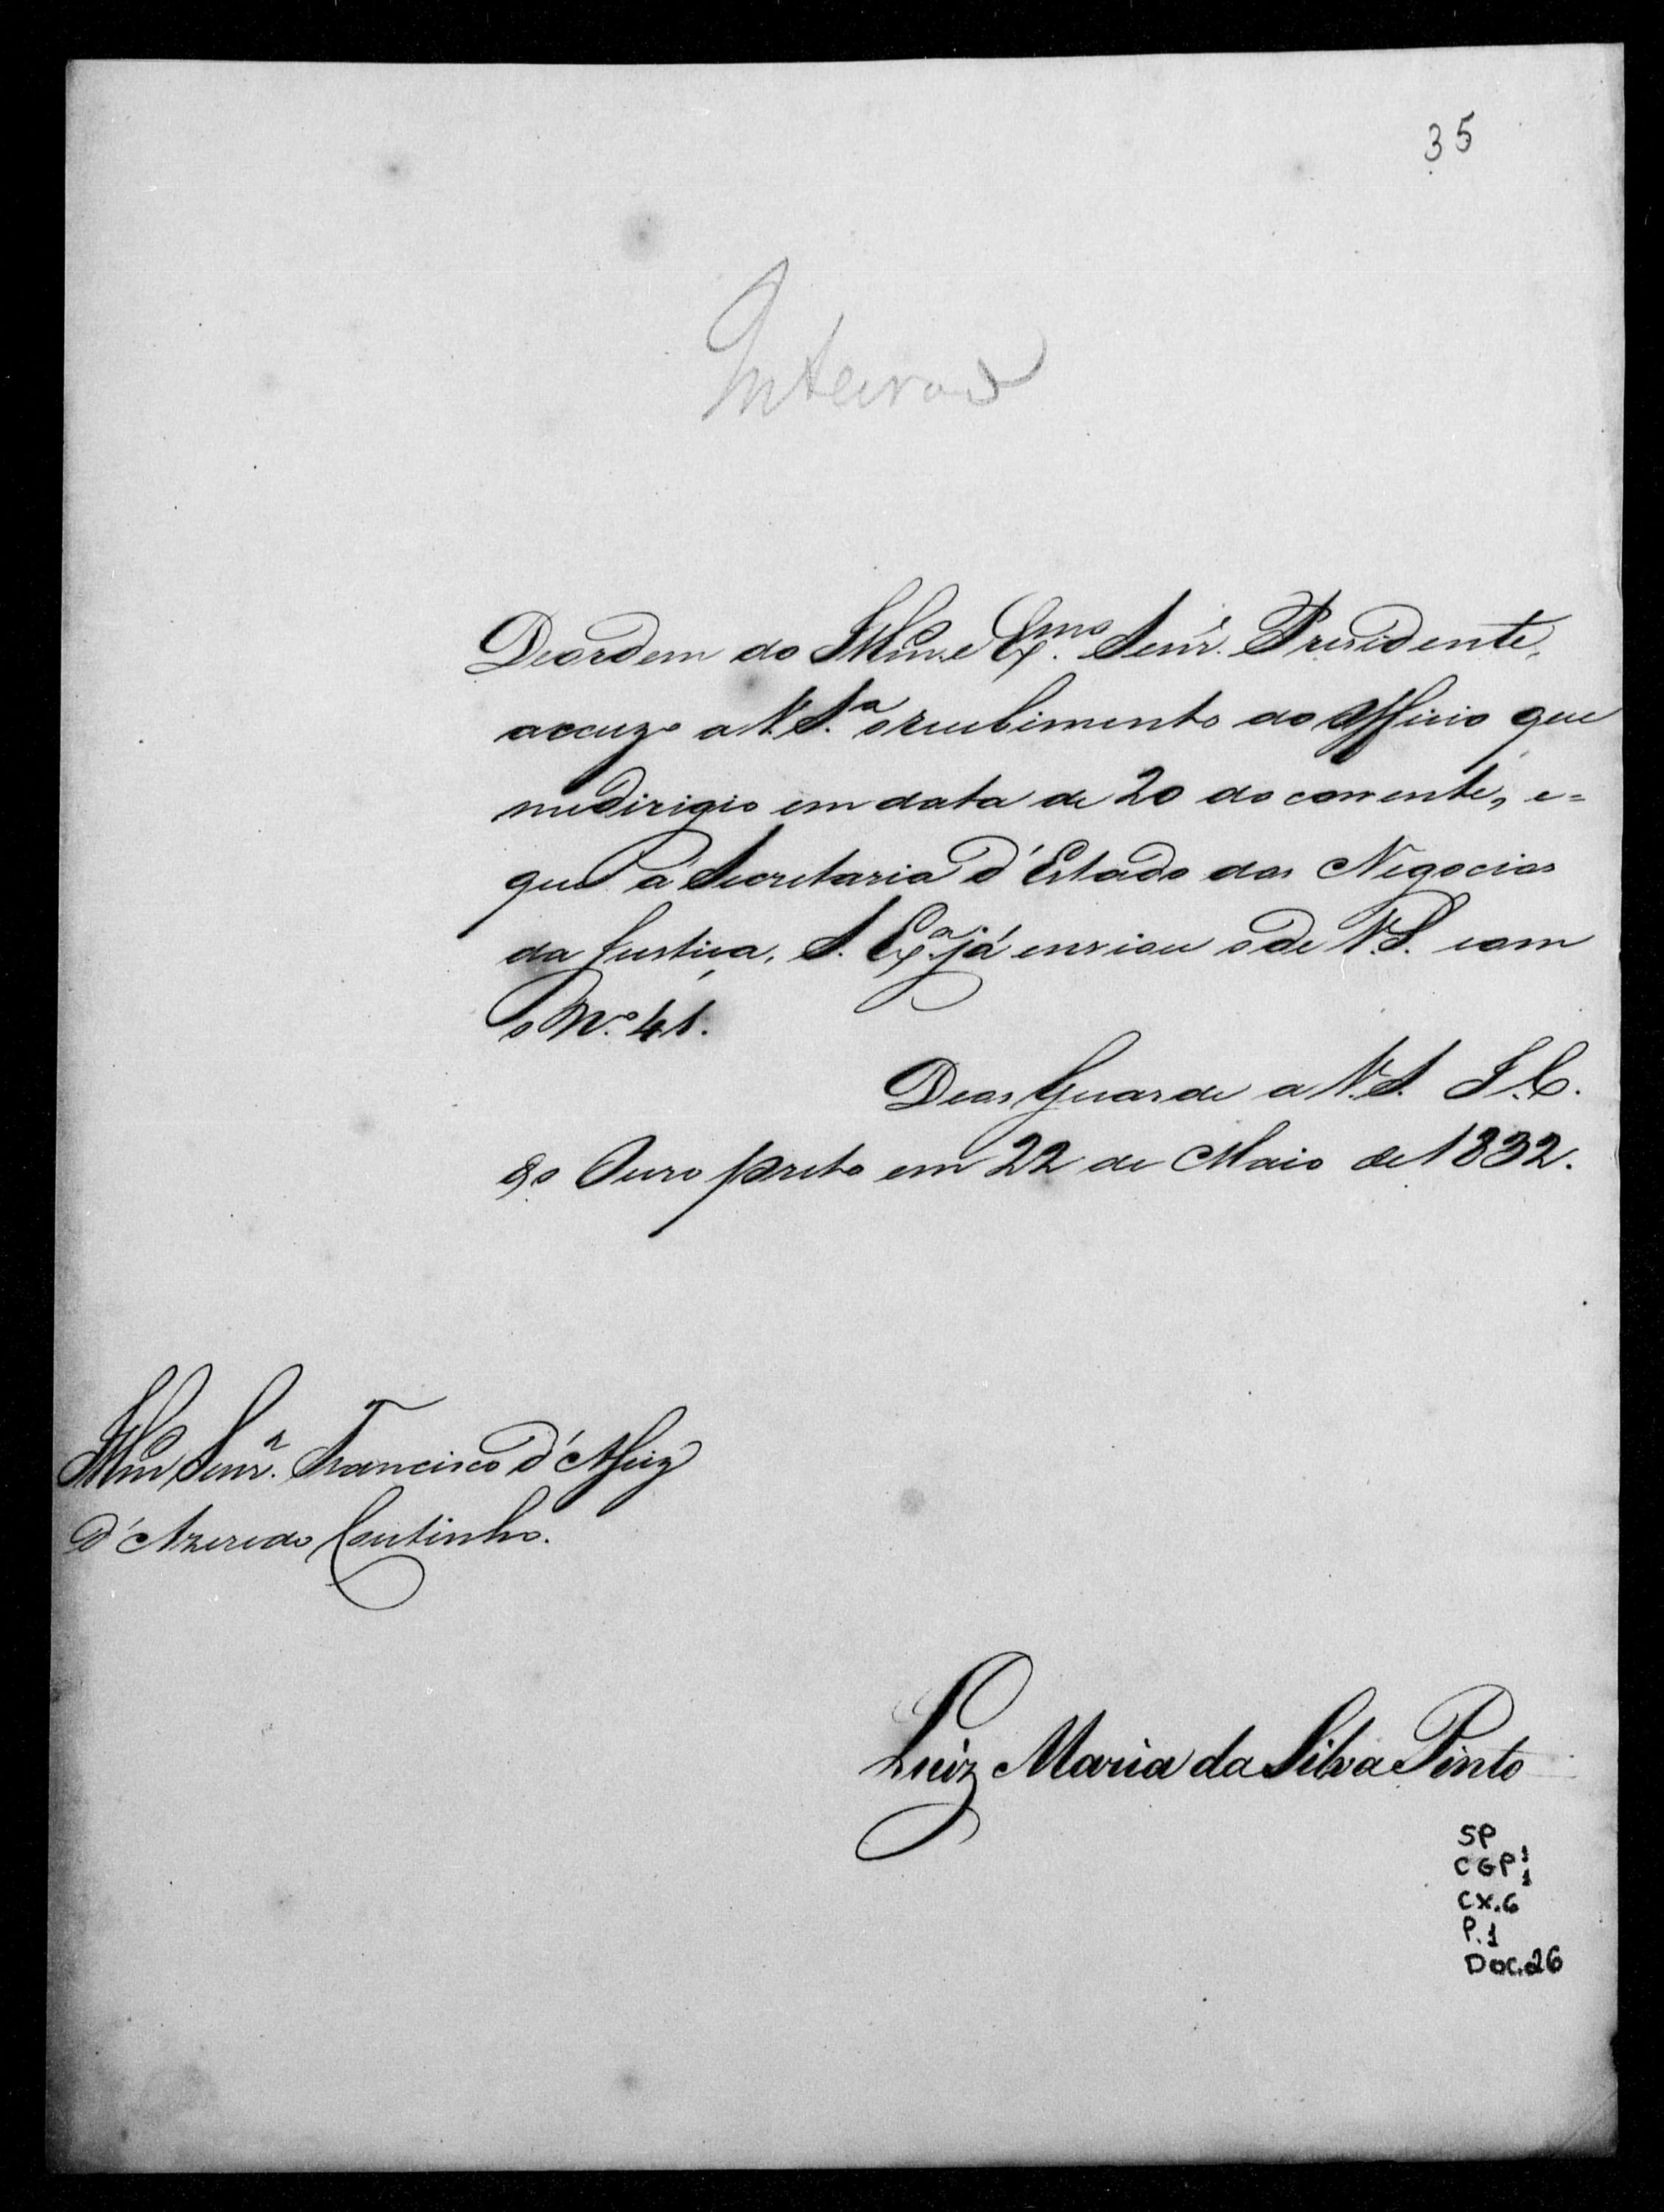 35
Inteirado
De ordem do Illm. e Ex.mo Senr. Presidente,
accuzo a V. S.a o recebimento do Officio que
me dirigio em data de 20 do corrente, e=
que á Secretaria d'Estado dos Negocios
da Justiça, S. Ex.a já enviou o de V. S. com
o N.o 41.
Deos Guarde a V. S. I. C.
do Ouro preto em 22 de Maio de 1832.
Illm Senr. Francisco d'Assiz
d'Azeredo Coutinho.
Luiz Maria da Silva Pinto
SP
CGP 1
1
CX.6
P.1
Doc.26